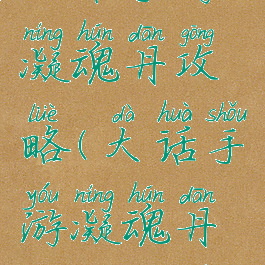 níng hún dān gōng
凝魂丹攻
lüè dà huà shǒu
略(大话手
yóu níng hún dān
游凝魂丹